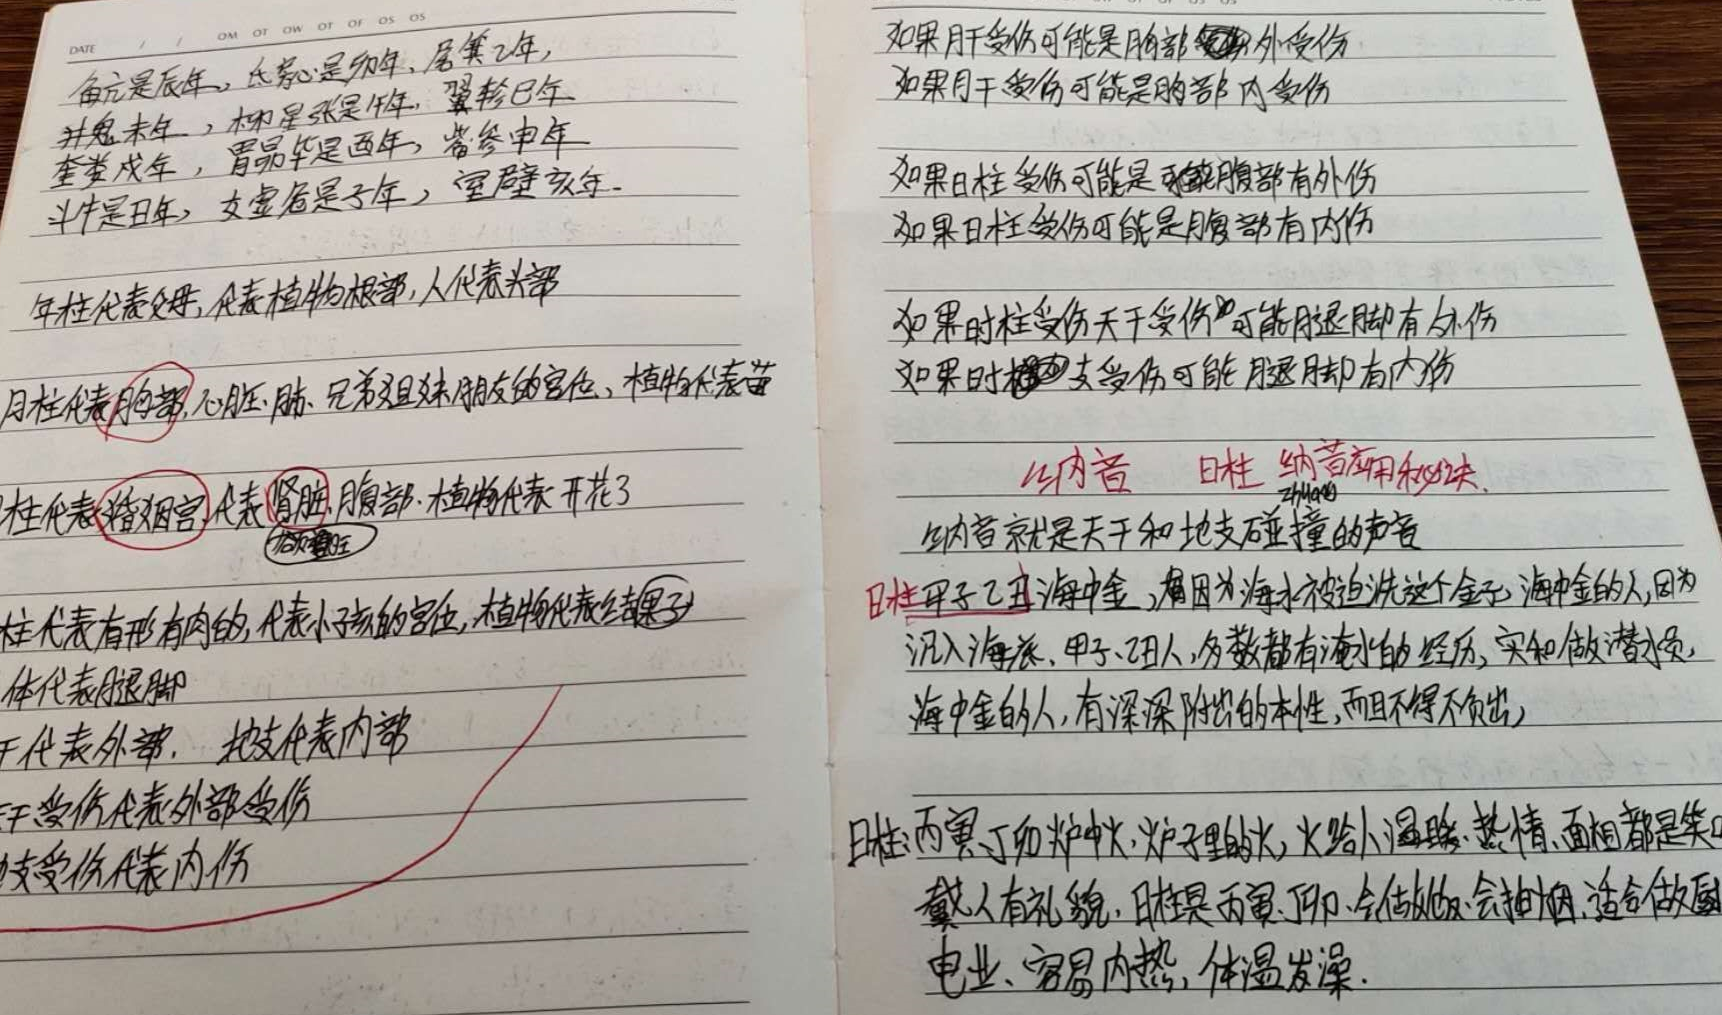 DATE / / OM OT OW OT OF OS OS
角亢是辰年、氐房心是卯年、尾箕乙年,
井鬼未年,柳星张是午年,翼轸巳年
奎娄戌年,胃昴毕是酉年,觜参申年
斗牛是丑年,女虚危是子年,室壁亥年.
年柱代表父母,代表植物根部,人代表头部
月柱代表胸部,心脏、肺、兄弟姐妹朋友的宫位、植物代表苗
柱代表婚姻宫,代表肾脏,腹部.植物代表开花了
柱代表有形有肉的,代表小孩的宫位,植物代表结果子
体代表腿脚
干代表外部. 地支代表内部
干受伤代表外部受伤
支受伤代表内伤
如果月干受伤可能是胸部外受伤
如果月干受伤可能是胸部内受伤
如果日柱受伤可能是腹部有外伤
如果日柱受伤可能是腹部有内伤
如果时柱受伤天干受伤可能腿脚有外伤
如果时支受伤可能腿脚有内伤
纳音 日柱 纳音应用和
zhuang
纳音就是天干和地支碰撞的声音
日柱甲子乙丑海中金,因为海水被迫洗这个金子,海中金的人,因为
沉入海底、甲子、乙丑人,多数都有淹水的经历,实和做潜水员,
海中金的人,有深深附出的本性,而且不得不负出,
日柱:丙寅、丁卯炉中火,炉子里的火,火给人温暖.热情、面相都是笑
戴人有礼貌,日柱是丙寅、丁卯、会做饭、会抽烟、适合做
电业、容易内热,体温发澡.